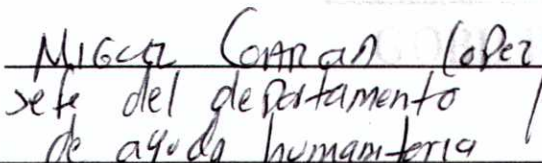 MIGUEL CORRAN LOPEZ
jefe del departamento
de ayuda humanitaria